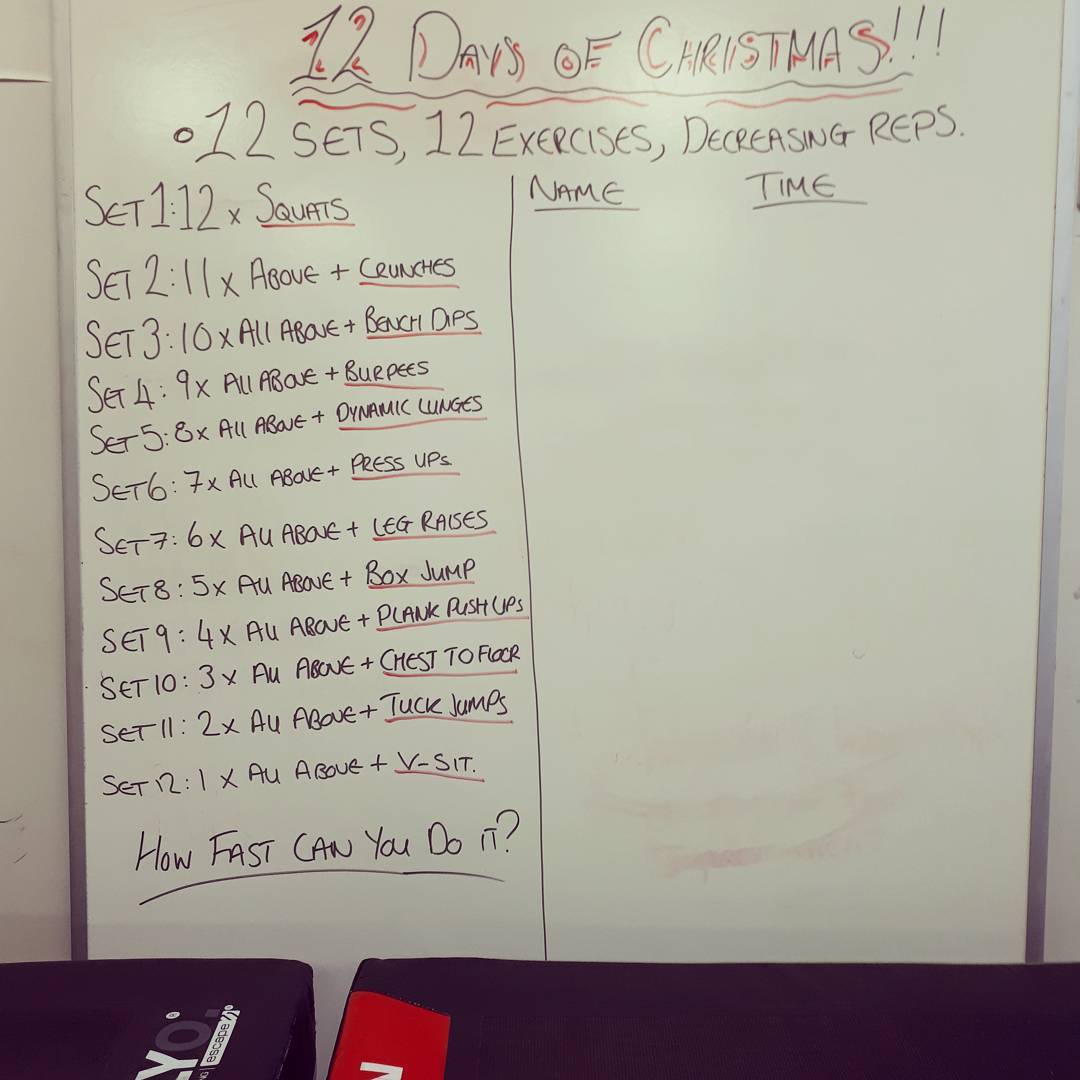 12 DAYS OF CHRISTMAS!!!
•12 SETS, 12 EXERCISES, DECREASING REPS.
SET 1:12 x SQUATS
SET 2:11 x ABOVE + CRUNCHES
SET 3:10 x All ABOVE + BENCH DIPS
SET 4: 9x All ABOVE + BURPEES
SET 5:8x All ABOVE + DYNAMIC LUNGES
SET 6: 7x All ABOVE + PRESS UPs
SET 7: 6x All ABOVE + LEG RAISES
SET 8: 5x All ABOVE + BOX JUMP
SET 9: 4x All ABOVE + PLANK PUSH UPs
SET 10: 3x All ABOVE + CHEST TO FLOOR
SET 11: 2x All ABOVE + TUCK JUMPS
SET 12: 1 x All ABOVE + V-SIT.
HOW FAST CAN YOU DO IT?
NAME TIME
YO.
escape
N